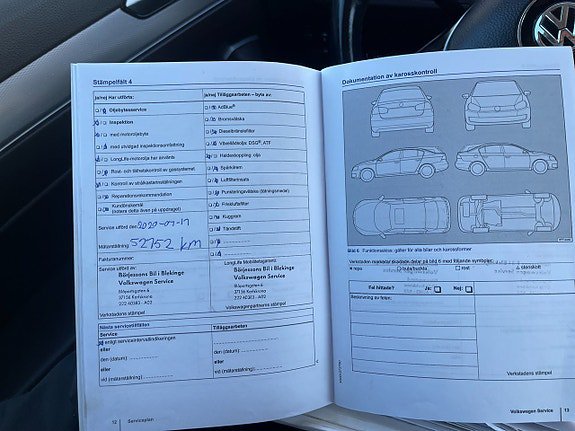 Stämpelfält 4
ja/nej Har utförts:
Oljebytesservice
Inspektion
med motoroljebyte
med utvidgad inspektionsomfattning
LongLife-motorolja har använts
Kontroll av strålkastarinställningen
Reparationsrekommendation
Kundönskemål
(notera detta även på uppdraget)
Service utförd den
Mätarställning: 52752 KM
Fakturanummer:
Service utförd av:
Börjessons Bil i Blekinge
Volkswagen Service
371 56 Karlskrona
Verkstadens stämpel
Nästa servicetillfällen
Service
enligt serviceintervallindikeringen
eller
den (datum):
eller
vid (mätarställning):
ja/nej Tilläggsarbeten – byte av:
AdBlue®
Bromsvätska
Dieselbränslefilter
Växellådsolja: DSG®, ATF
Haldexkoppling: olja
Spärrkärem
Luftfilterinsats
Friskluftfilter
Kuggrem
Tändstift
LongLife Mobilitetsgaranti
Börjessons Bil i Blekinge
Volkswagen Service
371 56 Karlskrona
Volkswagenpartnerns stämpel
Tilläggsarbeten
den (datum):
eller
vid (mätarställning):
12 Serviceplan
Dokumentation av karosskontroll
Bild 6 Funktionsskiss: gäller för alla bilar och karossformer
Verkstaden markerar skadade delar på bild 6 med följande symboler:
x repa
buckla
rost
△ stenskott
Fel hittade?
Ja:
Nej:
Beskrivning av felen:
Verkstadens stämpel
Volkswagen Service 13